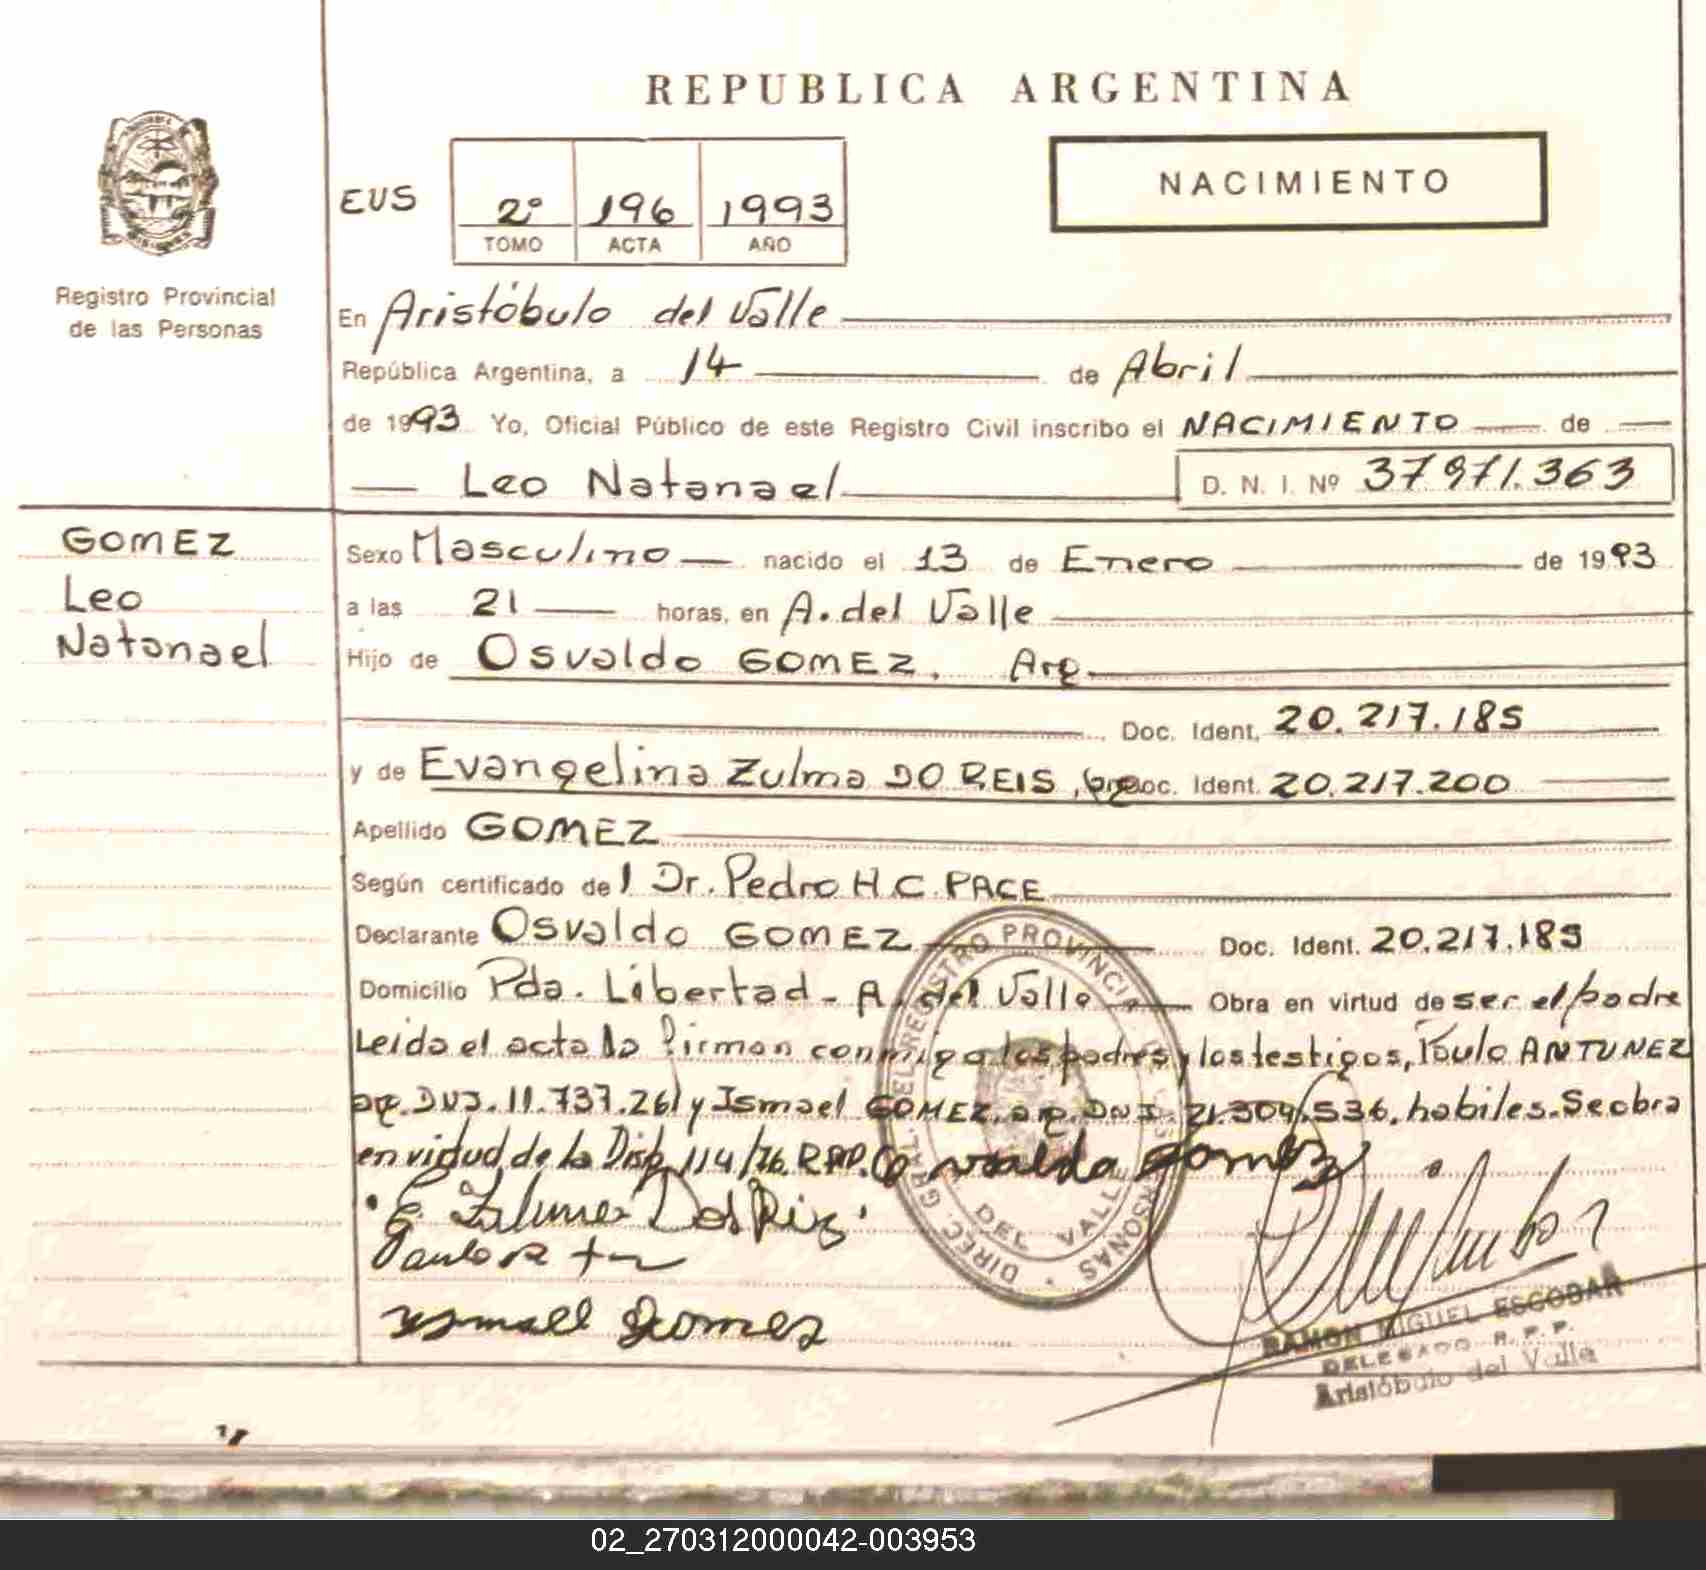 REPUBLICA ARGENTINA
NACIMIENTO
EUS
2º 196 1993
TOMO ACTA AÑO
Registro Provincial
de las Personas
En Aristóbulo del Valle
República Argentina, a 14 de Abril
de 1993 Yo, Oficial Público de este Registro Civil inscribo el NACIMIENTO de
Leo Natanael D. N. I. Nº 37971.363
GOMEZ
Leo
Natanael
Sexo Masculino nacido el 13 de Enero de 1993
a las 21 horas, en A. del Valle
Hijo de Osvaldo GOMEZ. Arg.
Doc. Ident. 20.217.185
y de Evangelina Zulma DO REIS, arg Doc. Ident. 20.217.200
Apellido GOMEZ
Según certificado del Dr. Pedro H. C. PACE
Declarante Osvaldo GOMEZ Doc. Ident. 20.217.185
Domicilio Pda. Libertad - A. del Valle Obra en virtud de ser el padre
Leida el acta la firman conmigo los padres y los testigos, Paulo ANTUNEZ
arg. DNI. 11.737.261 y Ismael GOMEZ, arg. DNI. 21.304.536, habiles. Se obra
en virtud de la Disp. 114/76. R.P.P. Osvaldo Gomez
Ismael Gomez
DIREC. GRAL. DEL REGISTRO PROVINCIAL PERSONAS
DEL VALLE
RAMON MIGUEL ESCOBAR
DELEGADO R. P. P.
Aristóbulo del Valle
02_270312000042-003953